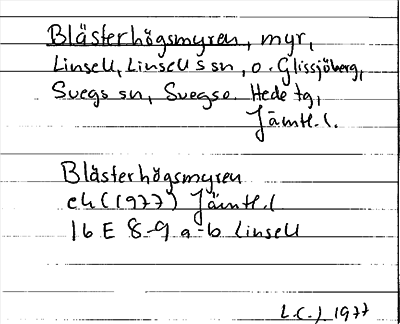 Blästerhögsmyren, myr,
Linsell, Linsells sn, o. Glissjöberg,
Svegs sn, Svegs o. Hede tg,
Jämtl. l.
Blästerhögsmyren
ek (1977) Jämtl. l
16 E 8-9 a-b Linsell
L.C.J. 1977